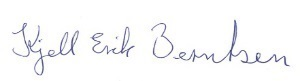 Kjell Erik Berntsen